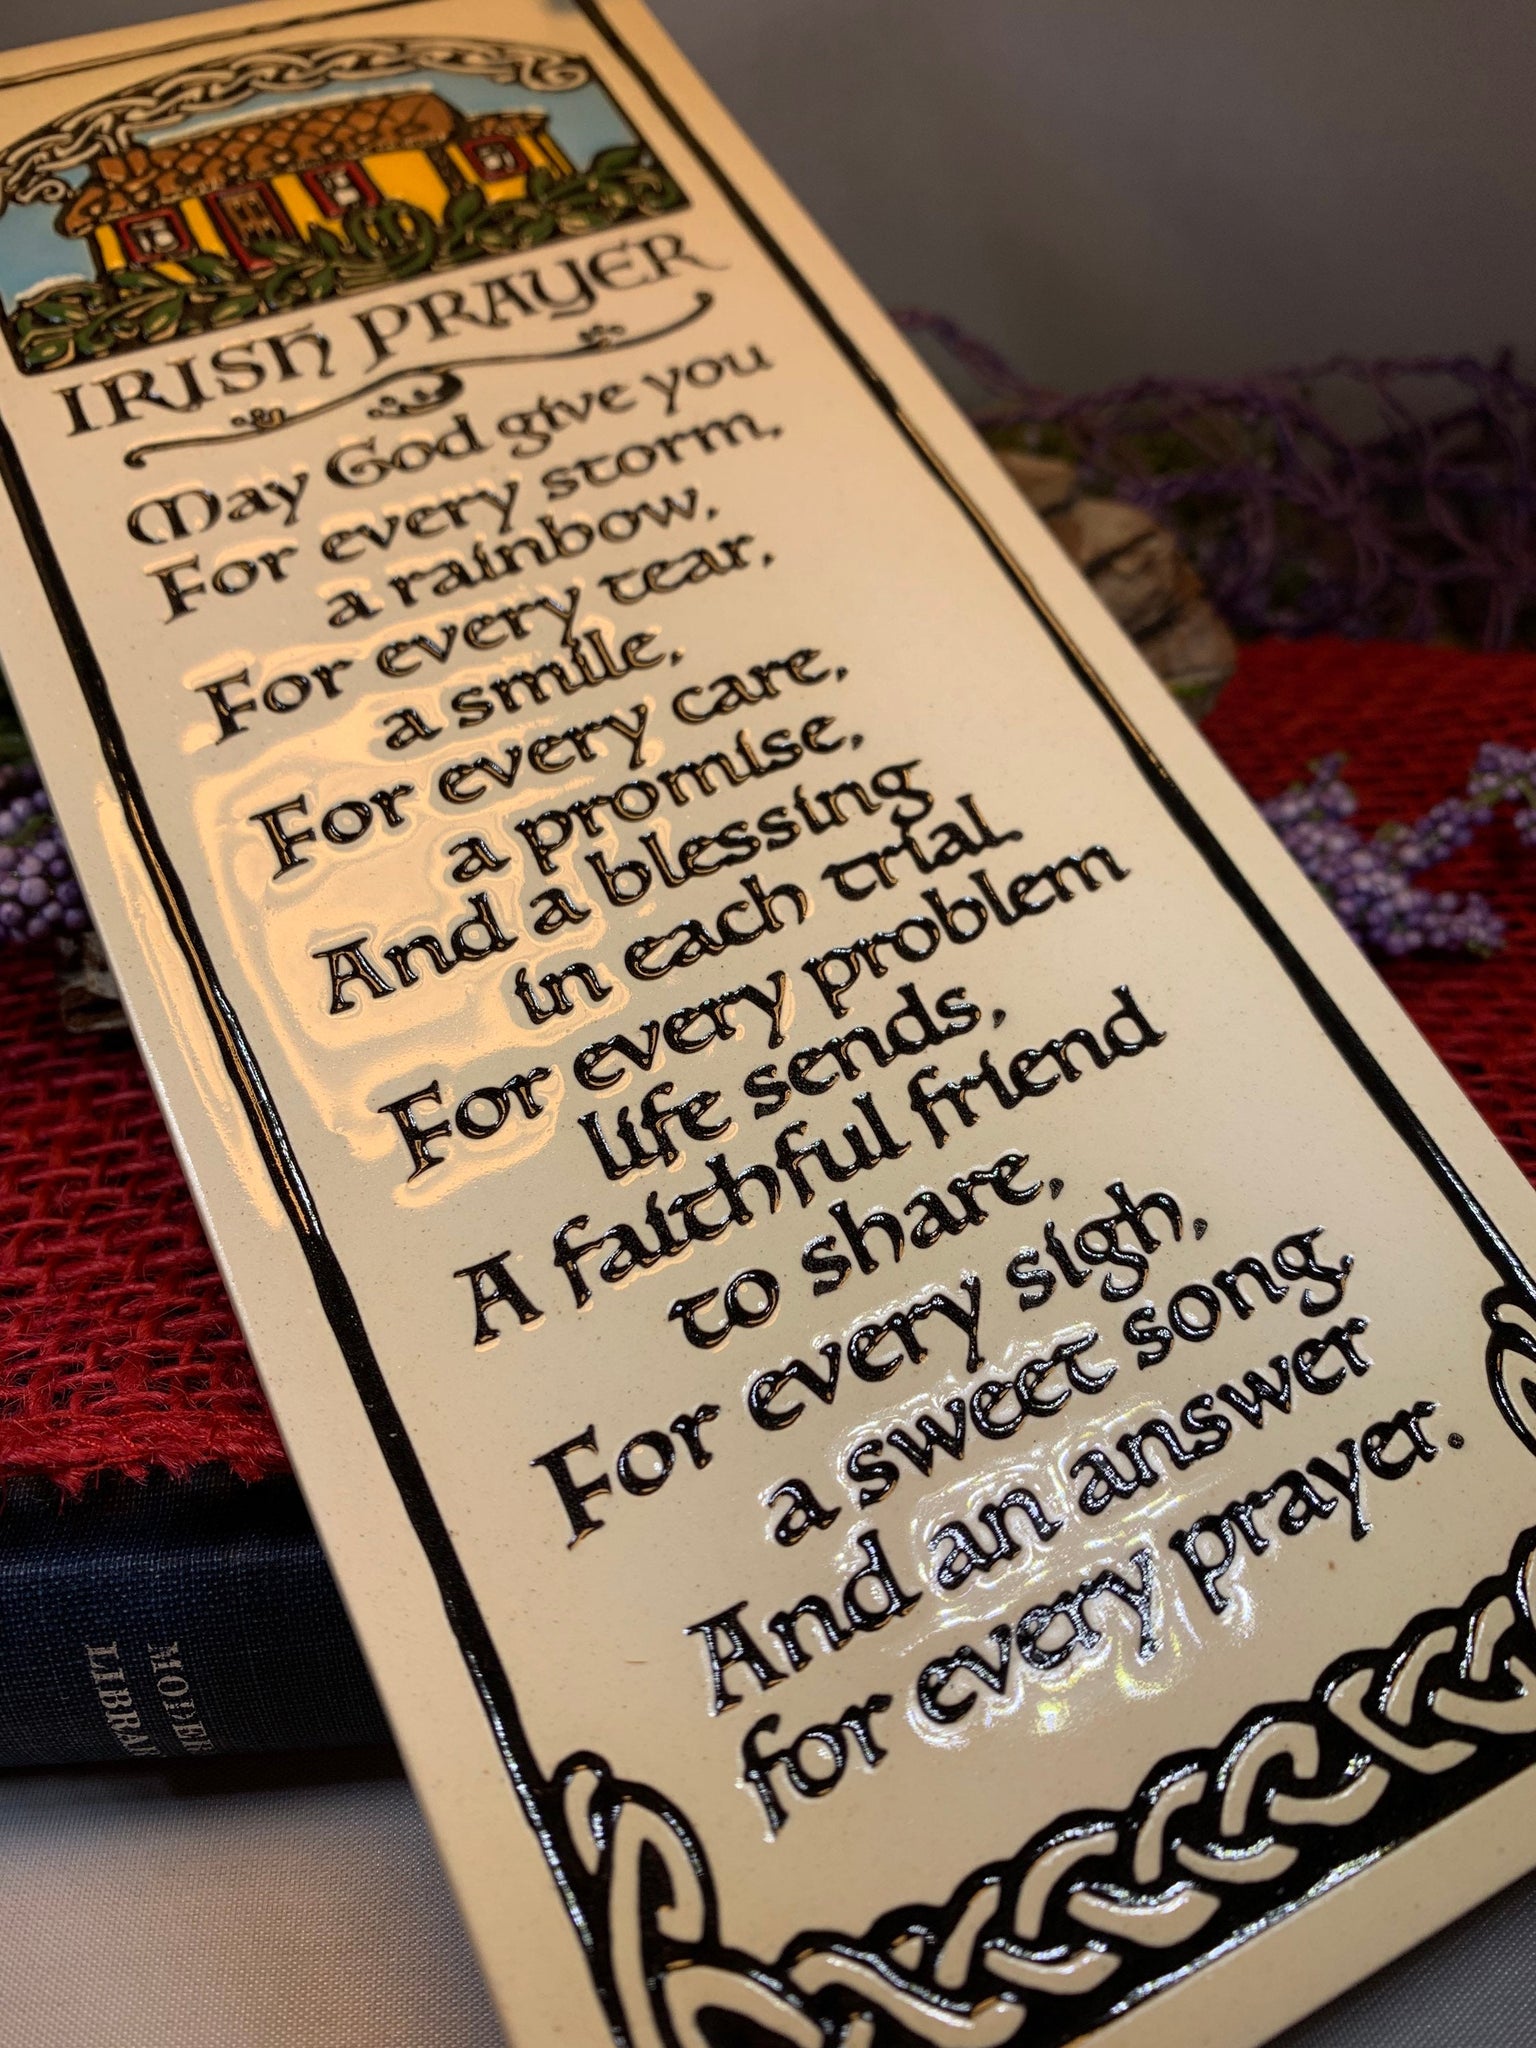 IRISH PRAYER
May God give you
For every storm,
a rainbow,
For every tear,
a smile,
For every care,
a promise,
And a blessing
in each trial.
For every problem
life sends,
A faithful friend
to share,
For every sigh,
a sweet song,
And an answer
for every prayer.
MODER
LIBRAR